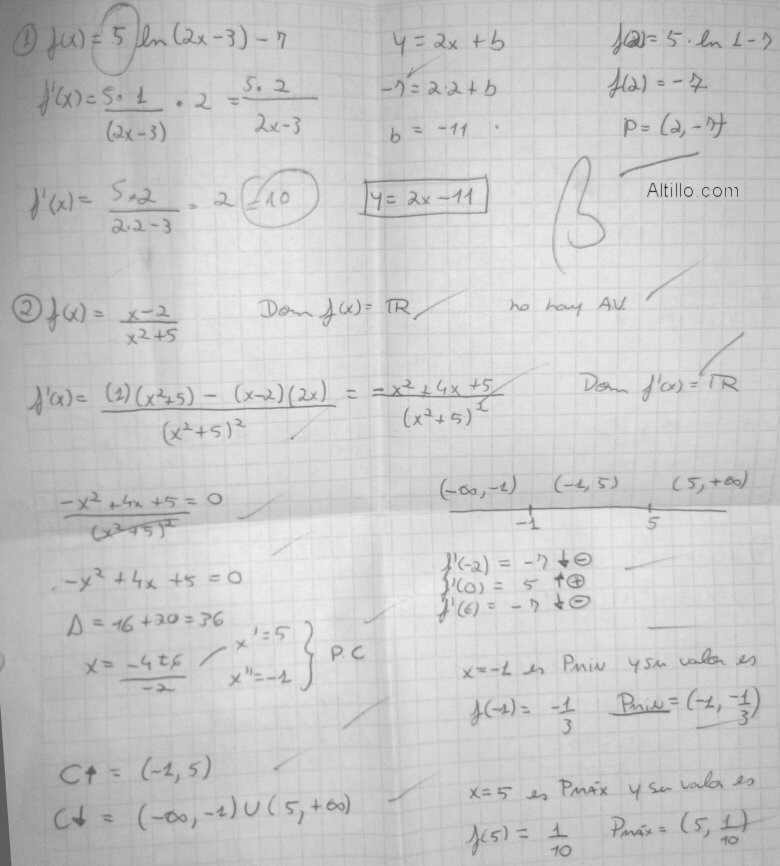 ① f(x) = 5 ln(2x-3) - 7
f'(x) = 5·1/(2x-3) · 2 = 5·2/2x-3
f'(x) = 5·2/2·2-3 · 2 = 10
y = 2x + b
-7 = 2·2+b
b = -11
y = 2x-11
f(2) = 5·ln 1-7
f(2) = -7
P = (2,-7)
Altillo.com
② f(x) = x-2/x²+5 Dom f(x) = ℝ no hay A.V.
f'(x) = (1)(x²+5) - (x-2)(2x)/(x²+5)² = -x²+4x+5/(x²+5)² Dom f'(x) = ℝ
-x²+4x+5/(x²+5)² = 0
-x²+4x+5 = 0
Δ = 16+20 = 36
x = -4±6/-2 x' = 5 x'' = -1 } P.C
C↑ = (-1,5)
C↓ = (-∞,-1) ∪ (5,+∞)
(-∞,-1) (-1,5) (5,+∞)
-1 5
f'(-2) = -7 ↓⊖
f'(0) = 5 ↑⊕
f'(6) = -7 ↓⊖
x=-1 es Pmin y su valor es
f(-1) = -1/3 Pmin = (-1, -1/3)
x=5 es Pmáx y su valor es
f(5) = 1/10 Pmáx = (5, 1/10)